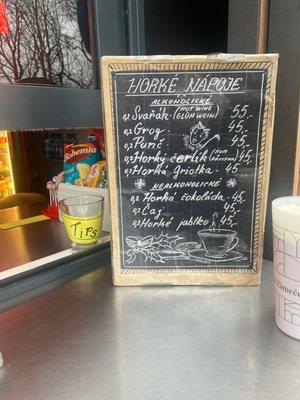 HORKÉ NÁPOJE
ALKOHOLICKÉ
0,2 Svařák (HOT WINE GLÜHWEIN) 55,-
0,2 Grog - 45,-
0,2 Punč - 45,-
0,2 Horký čertík (RUM 45,-
0,2 Horká griotka - 45,-
NEALKOHOLICKÉ
0,2 Horká čokoláda - 45,-
0,2 Čaj - 45,-
0,2 Horké jablko - 45,-
Bohemia
TIPS